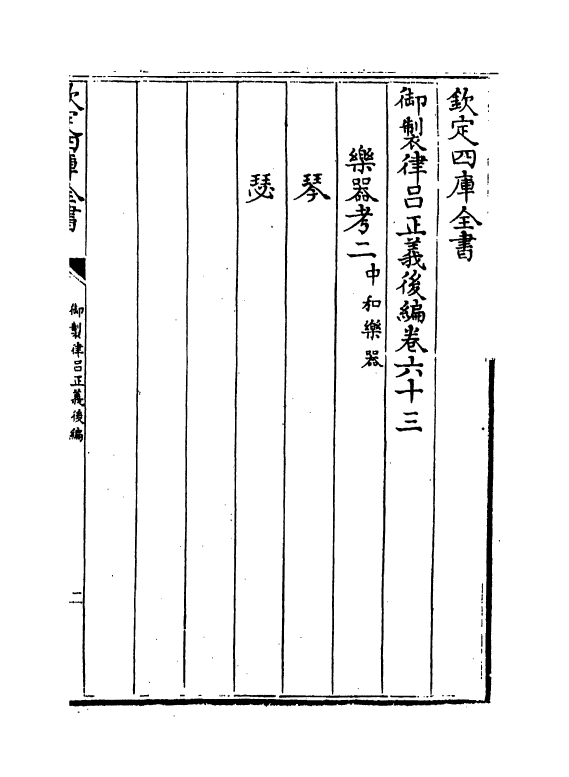 欽定四庫全書
御製律呂正義後編卷六十三
樂器考二中和樂器
琴
瑟
欽定四庫全書
御製律呂正義後編
二